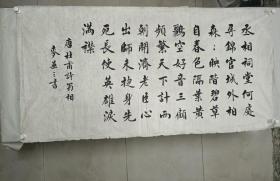 丞相祠堂何處
尋錦官城外柏
森々映階碧草
自春色隔葉黄
鸝空好音三顧
頻繁天下計兩
朝開濟老臣心
出師未捷身先
死長使英雄淚
滿襟
唐杜甫詩蜀相
書